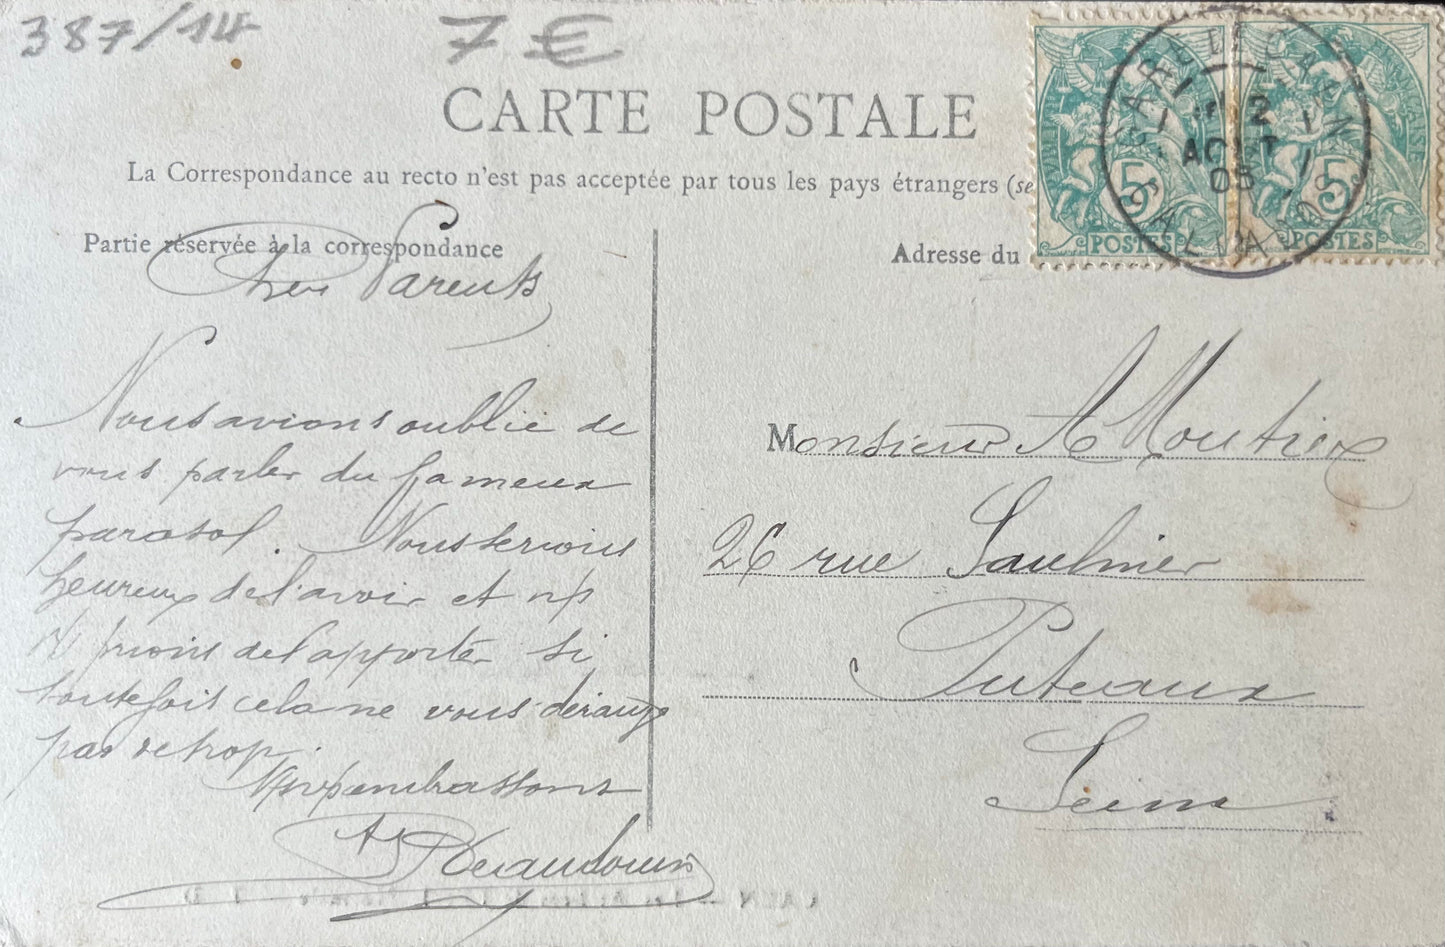 387/14
7 €
CARTE POSTALE
La Correspondance au recto n'est pas acceptée par tous les pays étrangers (se
Partie réservée à la correspondance
Adresse du
5 POSTES
5 POSTES
2
AOUT
05
Chers Parents
Nous avions oublié de
vous parler du fameux
parasol. Nous serions
heureux de l'avoir et ns
vs prions de l'apporter si
toutefois cela ne vous dérange
pas de trop.
embrassons
Monsieur A Moutier
26 rue Saulnier
Puteaux
Seine